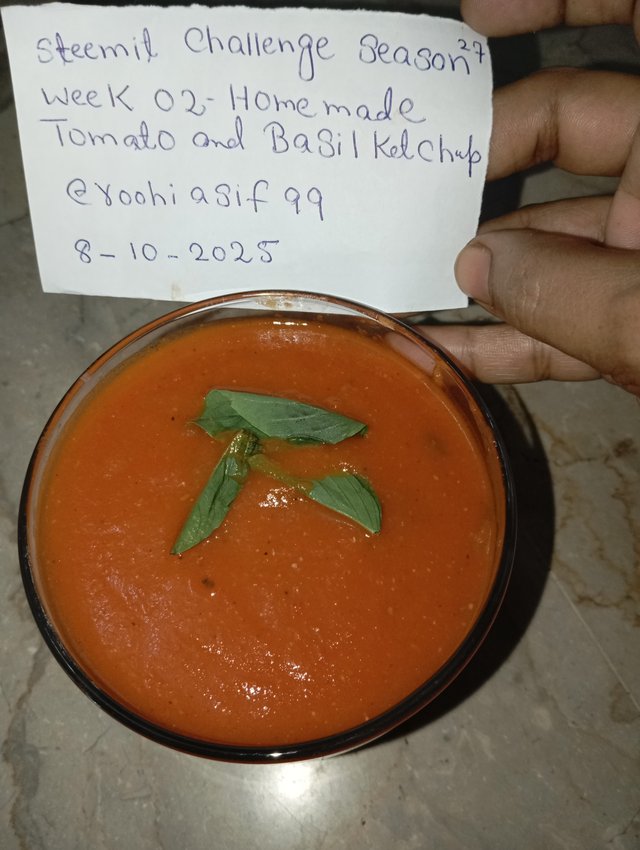 Steemit Challenge Season 27
Week 02- Homemade
Tomato and Basil Ketchup
@roohiasif99
8-10-2025